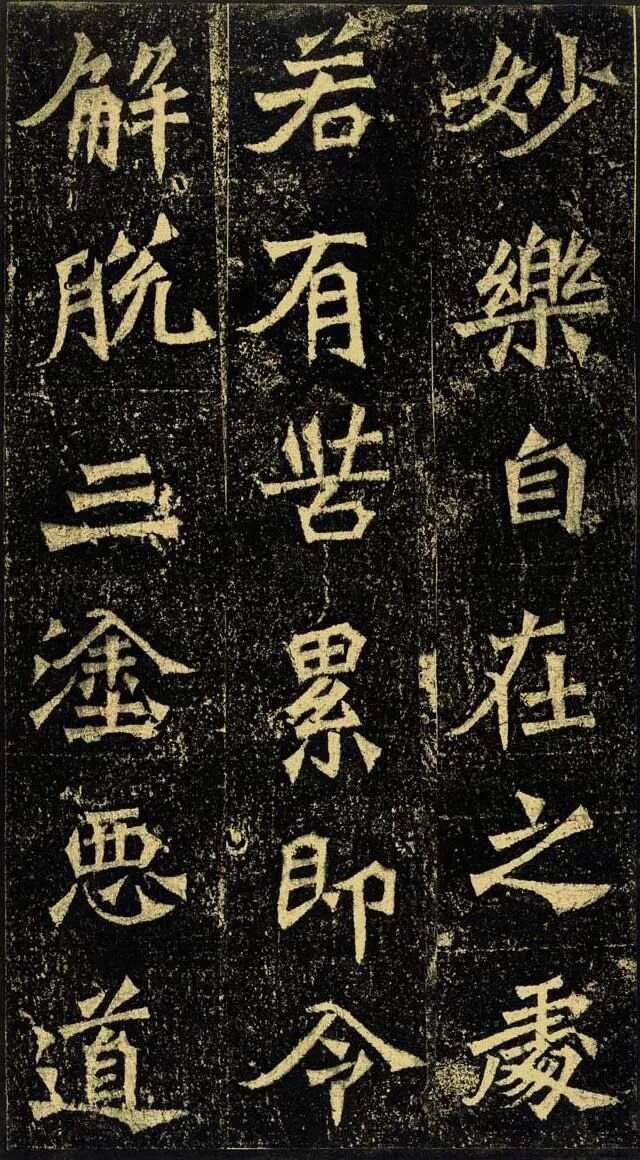 妙樂自在之處
若有苦累即令
解脫三塗惡道